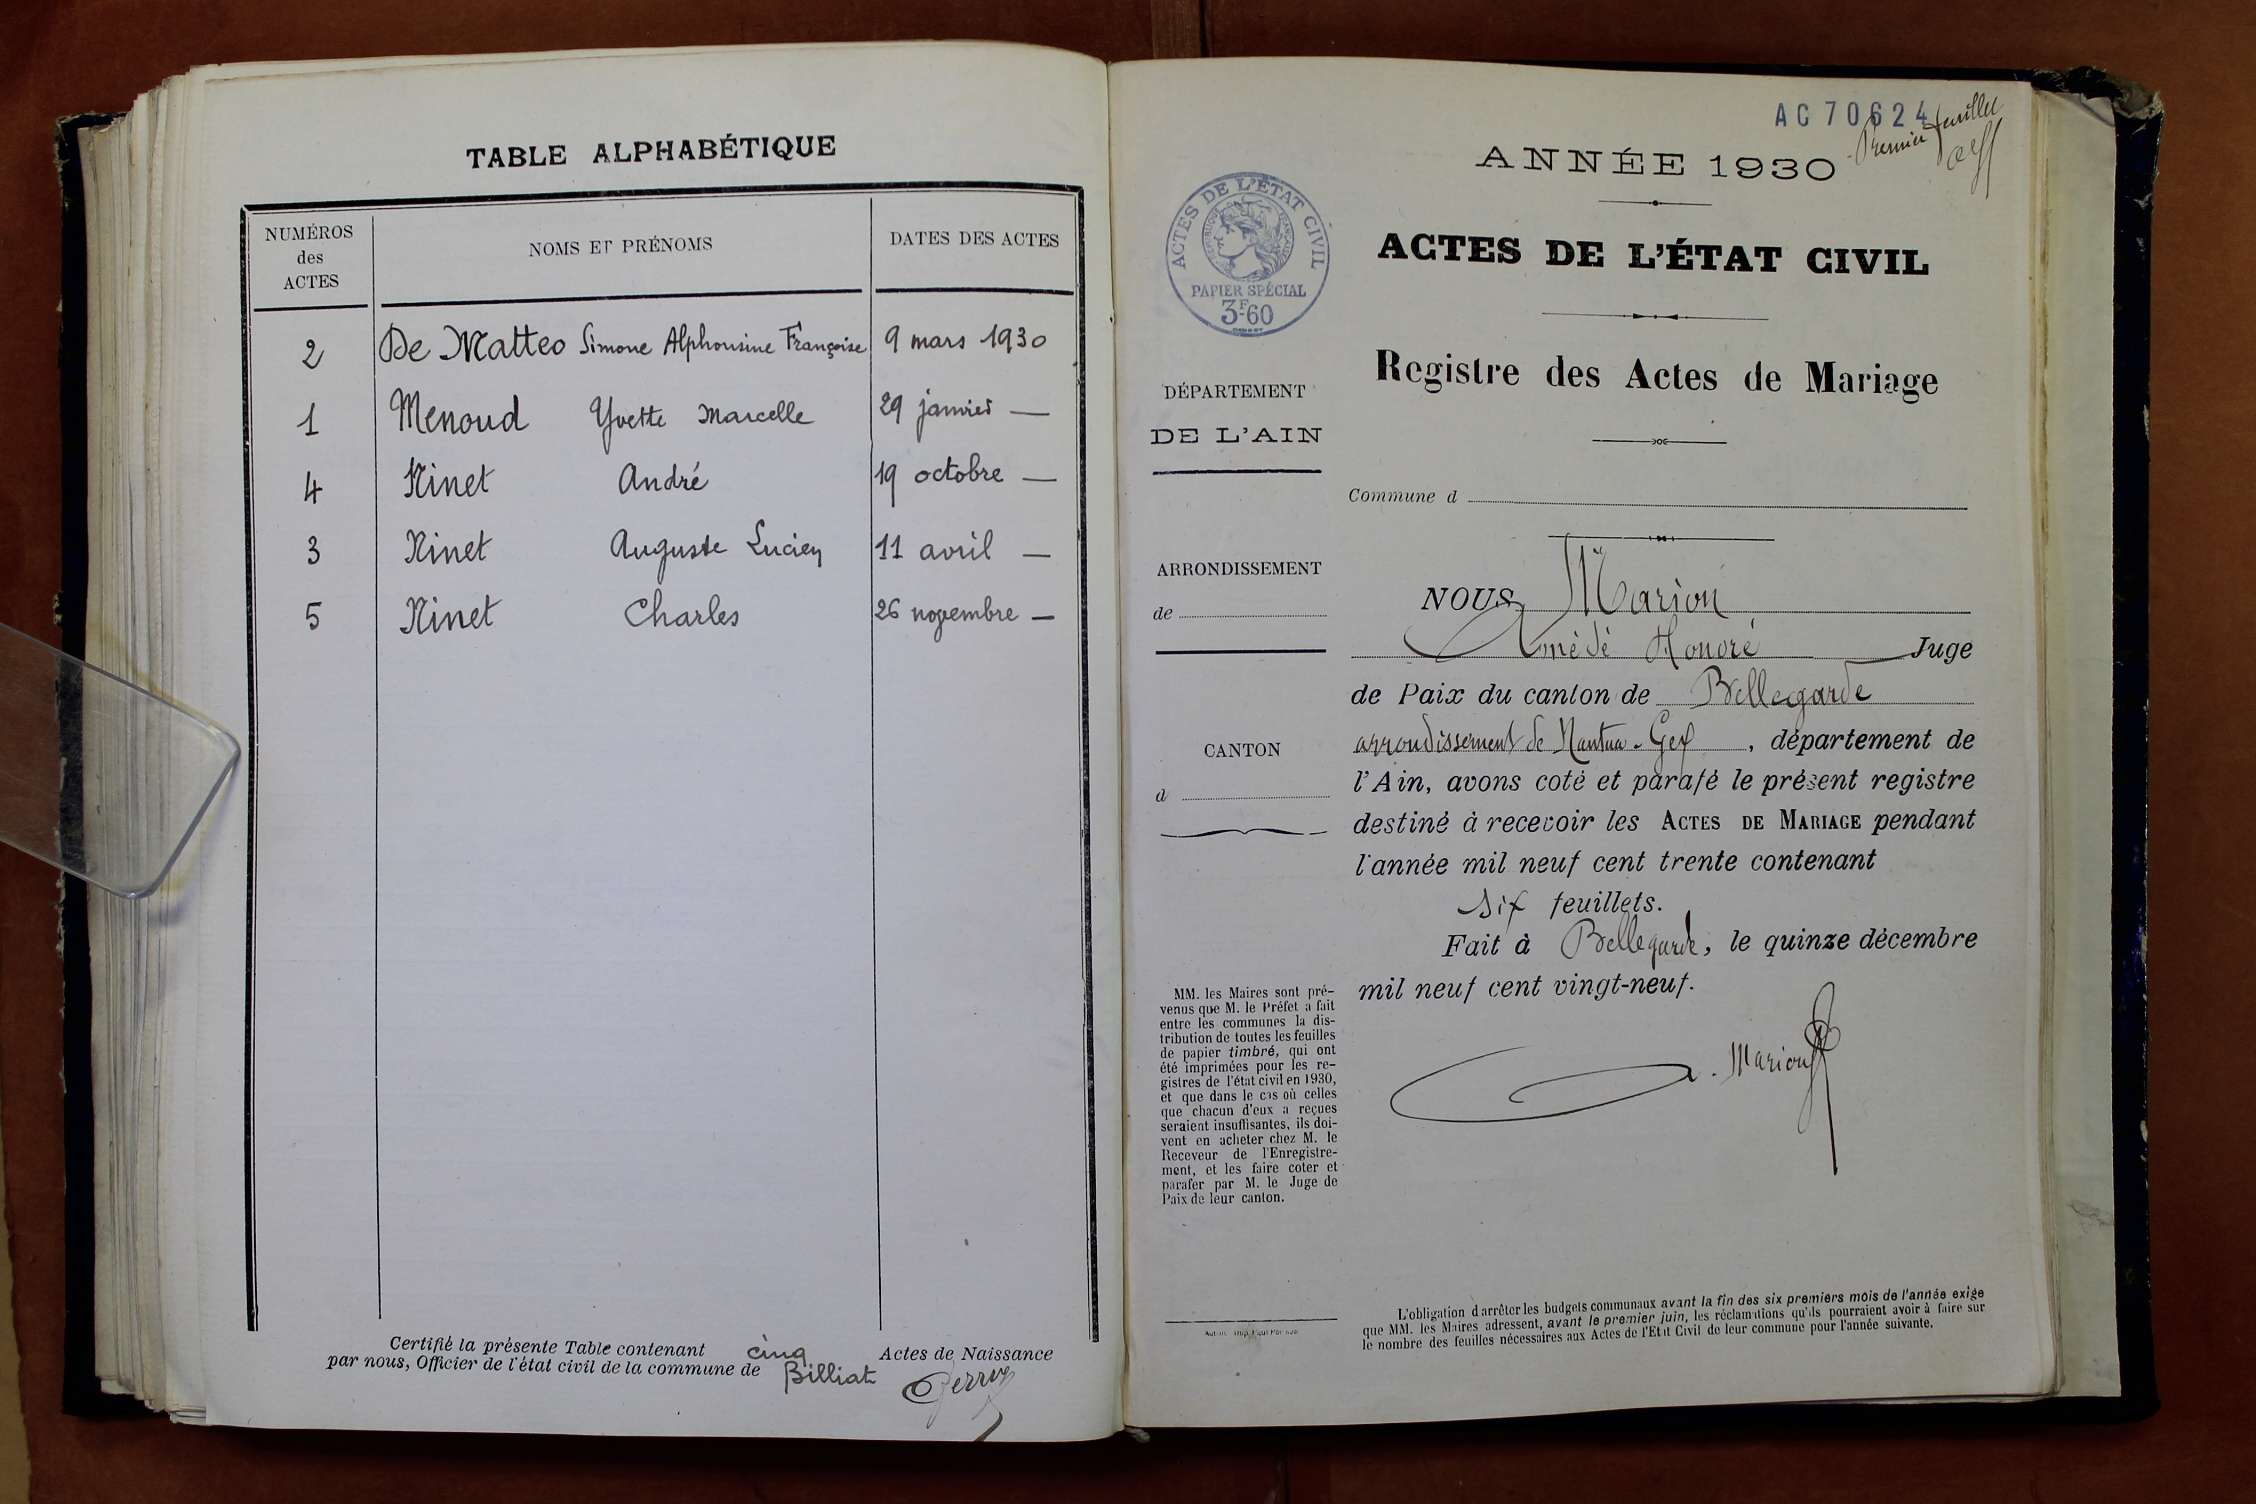 TABLE ALPHABÉTIQUE
NUMÉROS
des
ACTES
NOMS ET PRÉNOMS
DATES DES ACTES
2 De Matteo Simone Alphonsine Françoise 9 mars 1930
1 Menoud Yvette Marcelle 29 janvier —
4 Ninet André 19 octobre —
3 Ninet Auguste Lucien 11 avril —
5 Ninet Charles 26 novembre —
Certifié la présente Table contenant cinq Actes de Naissance
par nous, Officier de l'état civil de la commune de Billiat
AC 70624
Premier feuillet
ANNÉE 1930
ACTES DE L'ÉTAT CIVIL
RÉPUBLIQUE FRANÇAISE
PAPIER SPÉCIAL
3F.60
ACTES DE L'ÉTAT CIVIL
Registre des Actes de Mariage
DÉPARTEMENT
DE L'AIN
Commune d
ARRONDISSEMENT
de
CANTON
d
NOUS, Marion
Amédé Honoré Juge
de Paix du canton de Bellegarde
arrondissement de Nantua-Gex, département de
l'Ain, avons coté et parafé le présent registre
destiné à recevoir les ACTES DE MARIAGE pendant
l'année mil neuf cent trente contenant
six feuillets.
Fait à Bellegarde, le quinze décembre
mil neuf cent vingt-neuf.
A. Marion
MM. les Maires sont pré-
venus que M. le Préfet a fait
entre les communes la dis-
tribution de toutes les feuilles
de papier timbré, qui ont
été imprimées pour les re-
gistres de l'état civil en 1930,
et que dans le cas où celles
que chacun d'eux a reçues
seraient insuffisantes, ils doi-
vent en acheter chez M. le
Receveur de l'Enregistre-
ment, et les faire coter et
parafer par M. le Juge de
Paix de leur canton.
L'obligation d'arrêter les budgets communaux avant la fin des six premiers mois de l'année exige
que MM. les Maires adressent, avant le premier juin, les réclamations qu'ils pourraient avoir à faire sur
le nombre des feuilles nécessaires aux Actes de l'Etat Civil de leur commune pour l'année suivante.